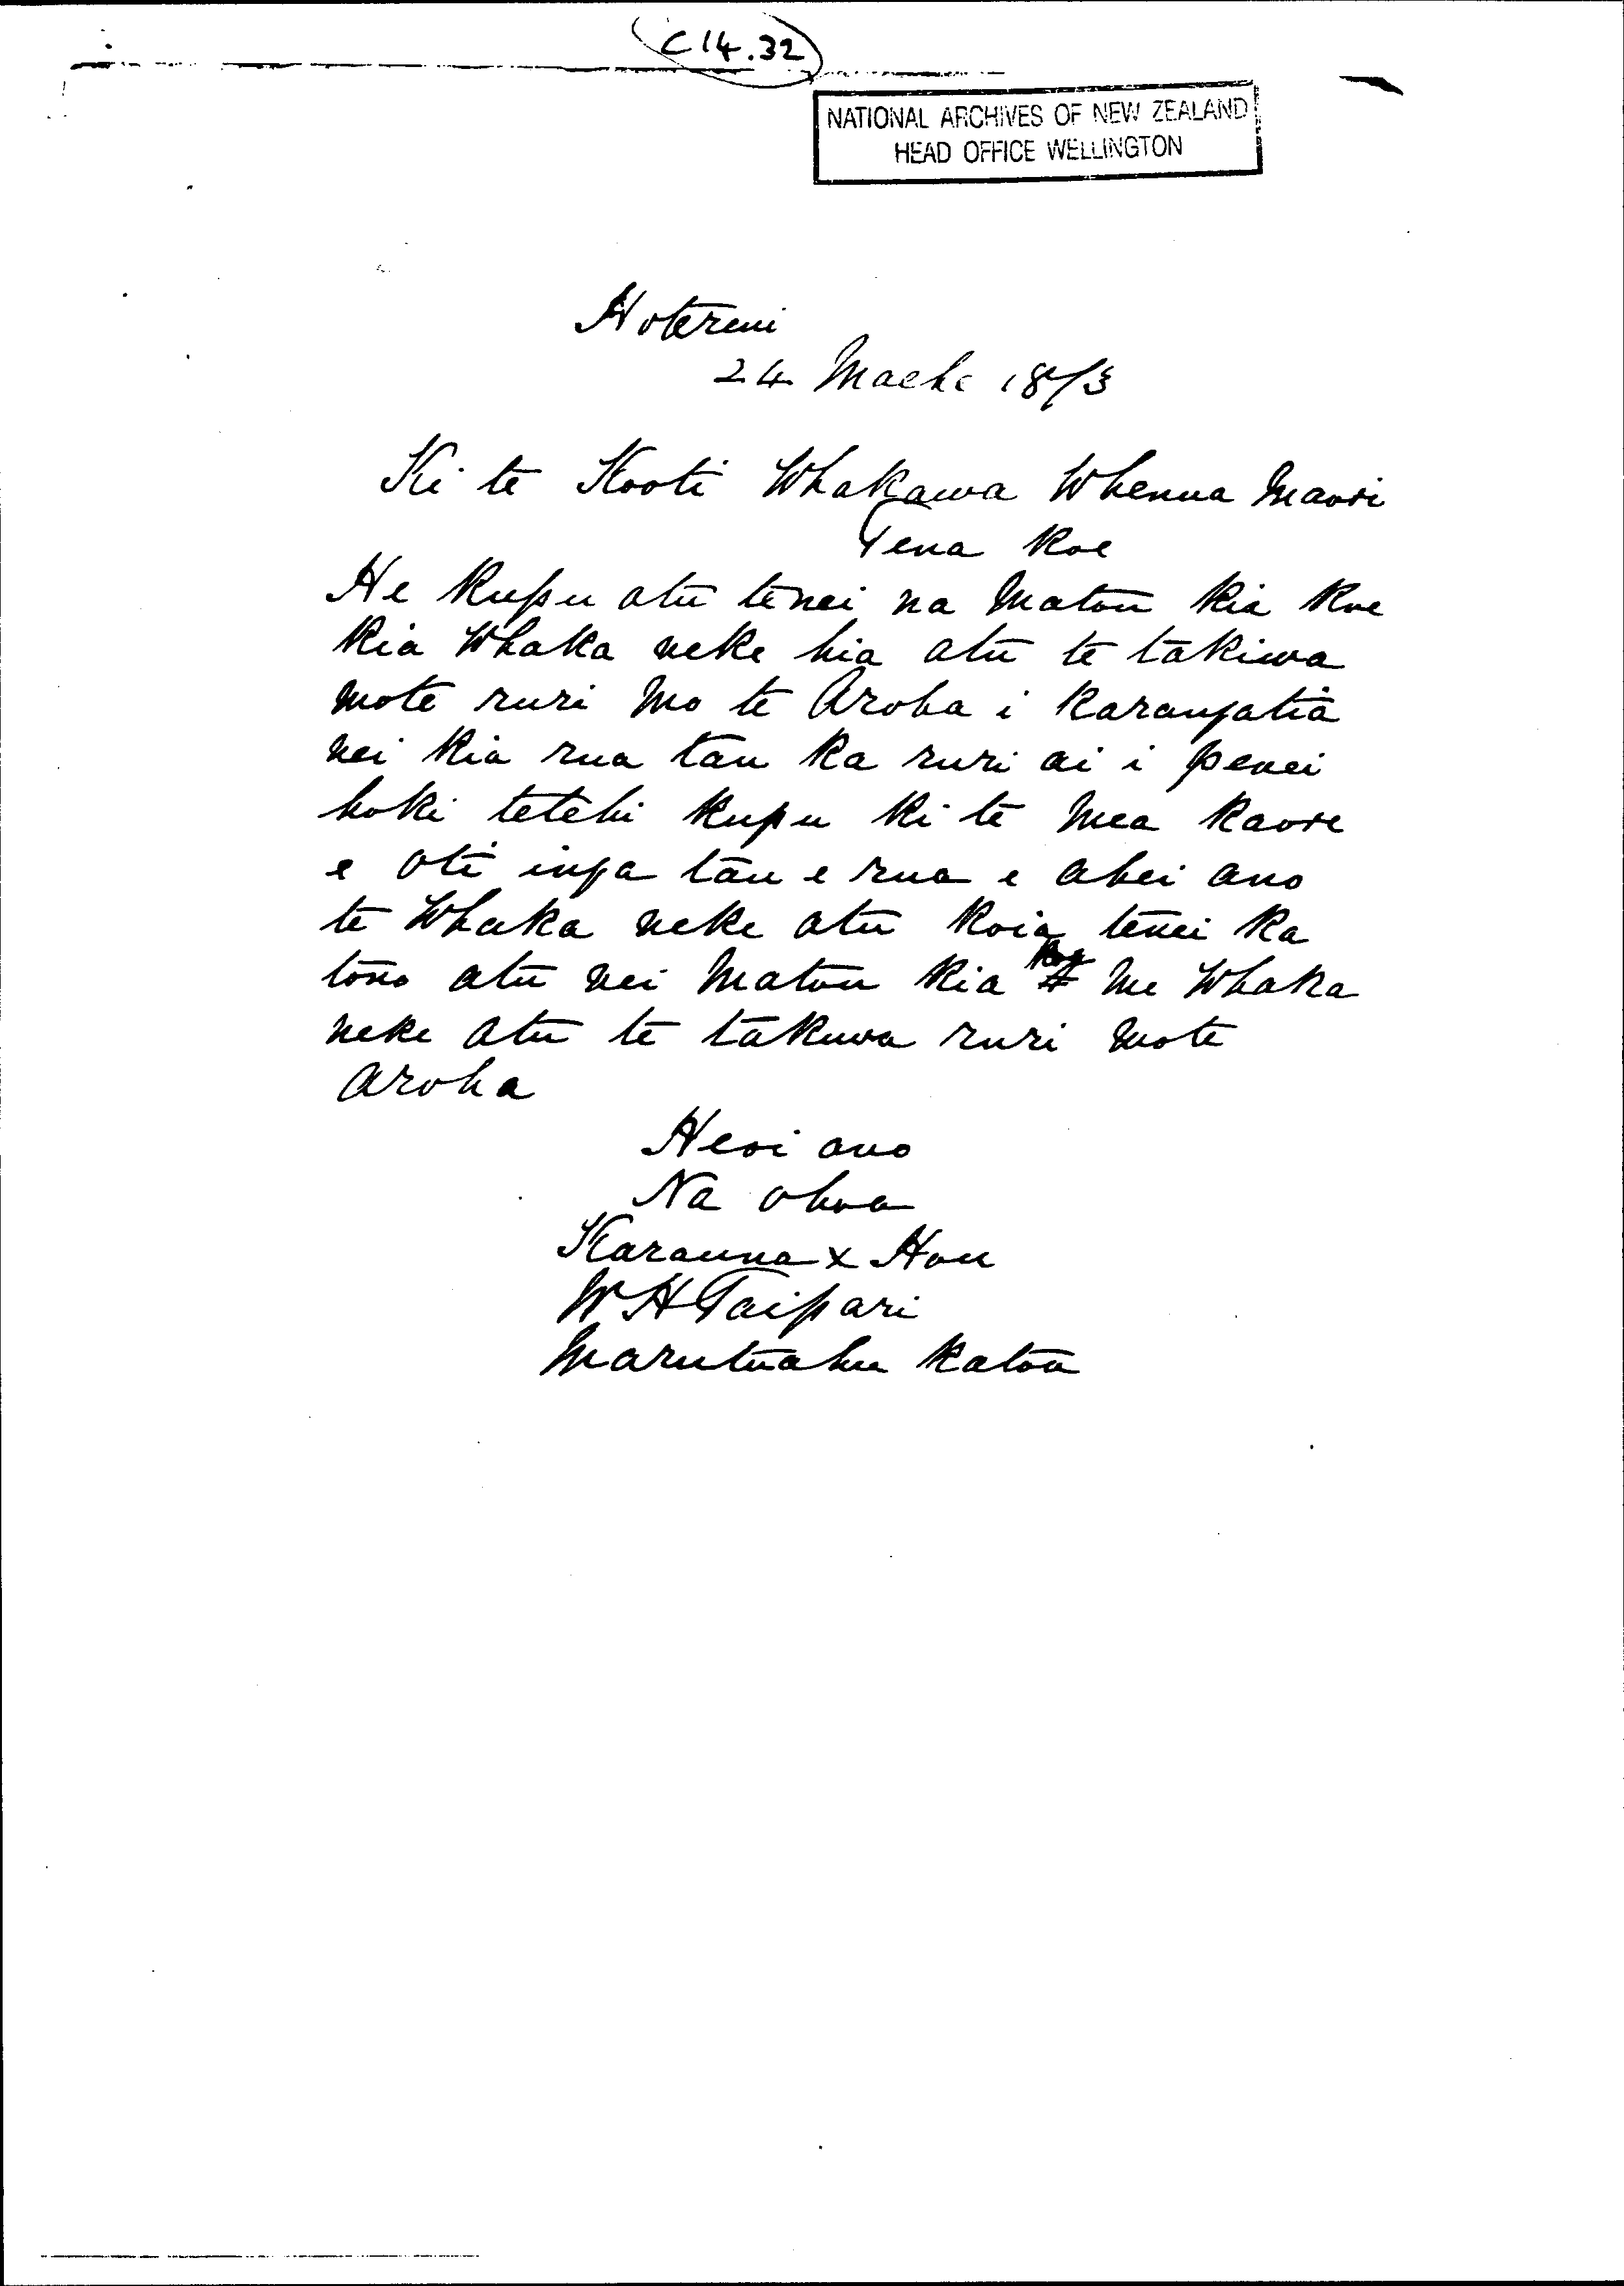 C 14.32
NATIONAL ARCHIVES OF NEW ZEALAND
HEAD OFFICE WELLINGTON
Hotereni
24 Maehe 1873
Ki te Kooti Whakawa Whenua Maori
Tena Koe
He Kupu atu tenei na Matou Kia Koe
Kia Whaka neke hia atu te takiwa
mote ruri Mo te Aroha i Karangatia
nei Kia rua tau Ka ruri ai i penei
hoki tetehi Kupu Ki te Mea Kaore
e oti inga tau e rua e ahei ano
te Whaka neke atu Koia tenei Ka
tono atu nei Matou Kia Koe Me Whaka
neke atu te takiwa ruri mote
Aroha
Heoi ano
Na ohoa
Karauna x Hou
W H Taipari
Marutuahu Katoa